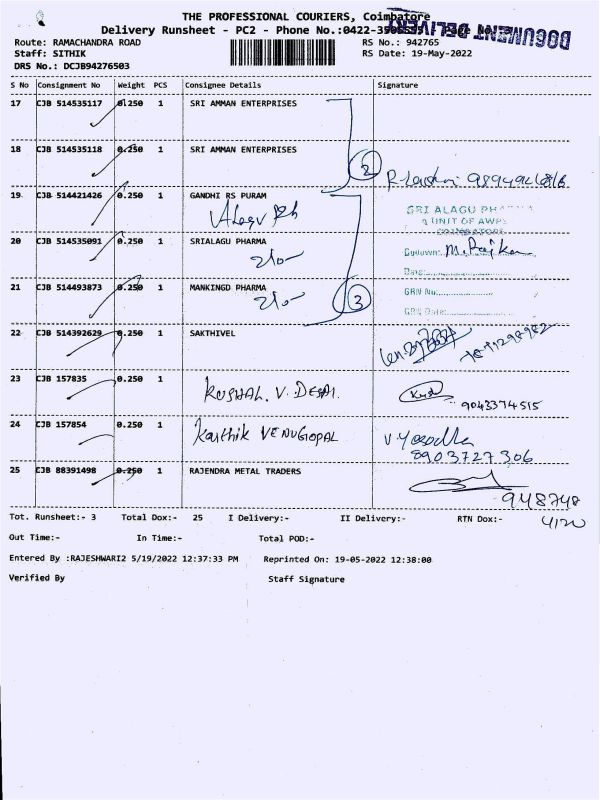 THE PROFESSIONAL COURIERS, Coimbatore
Delivery Runsheet - PC2 - Phone No.:0422-
DOCUMENT DELIVERY
Route: RAMACHANDRA ROAD
RS No.: 942765
Staff: SITHIK
RS Date: 19-May-2022
DRS No.: DCJB94276503
S No Consignment No Weight PCS Consignee Details Signature
17 CJB 514535117 0.250 1 SRI AMMAN ENTERPRISES
18 CJB 514535118 0.250 1 SRI AMMAN ENTERPRISES
2
19 CJB 514421426 0.250 1 GANDHI RS PURAM
SRI ALAGU PHARMA
A UNIT OF AWPL
COIMBATORE
20 CJB 514535091 0.250 1 SRIALAGU PHARMA
Godown:
Date:
21 CJB 514493873 0.250 1 MANKINGD PHARMA
3
GRN No:
GRN Date:
22 CJB 514392629 0.250 1 SAKTHIVEL
23 CJB 157835 0.250 1
KUSHAL. V. DESAI.
9043374515
24 CJB 157854 0.250 1
Karthik VENUGOPAL
V. Yasodha
8903727306
25 CJB 88391498 0.250 1 RAJENDRA METAL TRADERS
948748
4120
Tot. Runsheet:- 3 Total Dox:- 25 I Delivery:- II Delivery:- RTN Dox:-
Out Time:- In Time:- Total POD:-
Entered By :RAJESHWARI2 5/19/2022 12:37:33 PM Reprinted On: 19-05-2022 12:38:00
Verified By Staff Signature